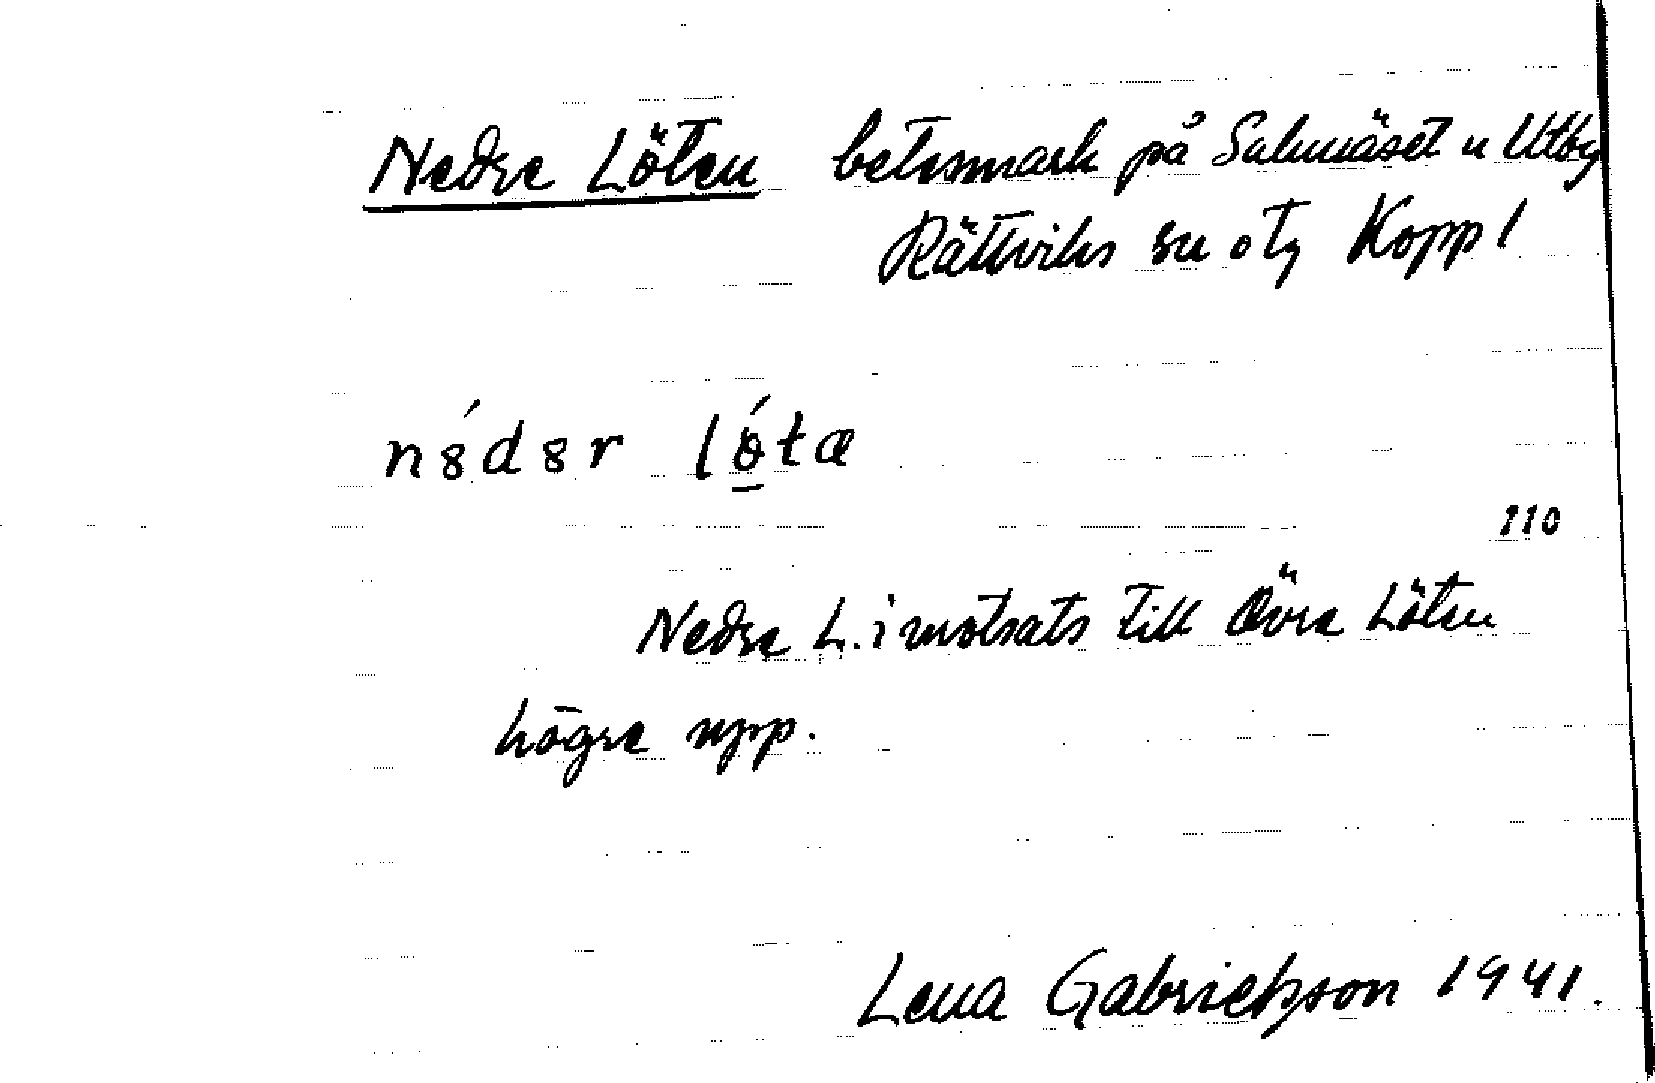 Nedre Löten betesmark på Salunäset u Utby
Rättviks sn o tg Kopp l
n8́d8r lǿtæ
110
Nedre L. i motsats till Övre Löten
högre upp.
Lena Gabrielsson 1941.